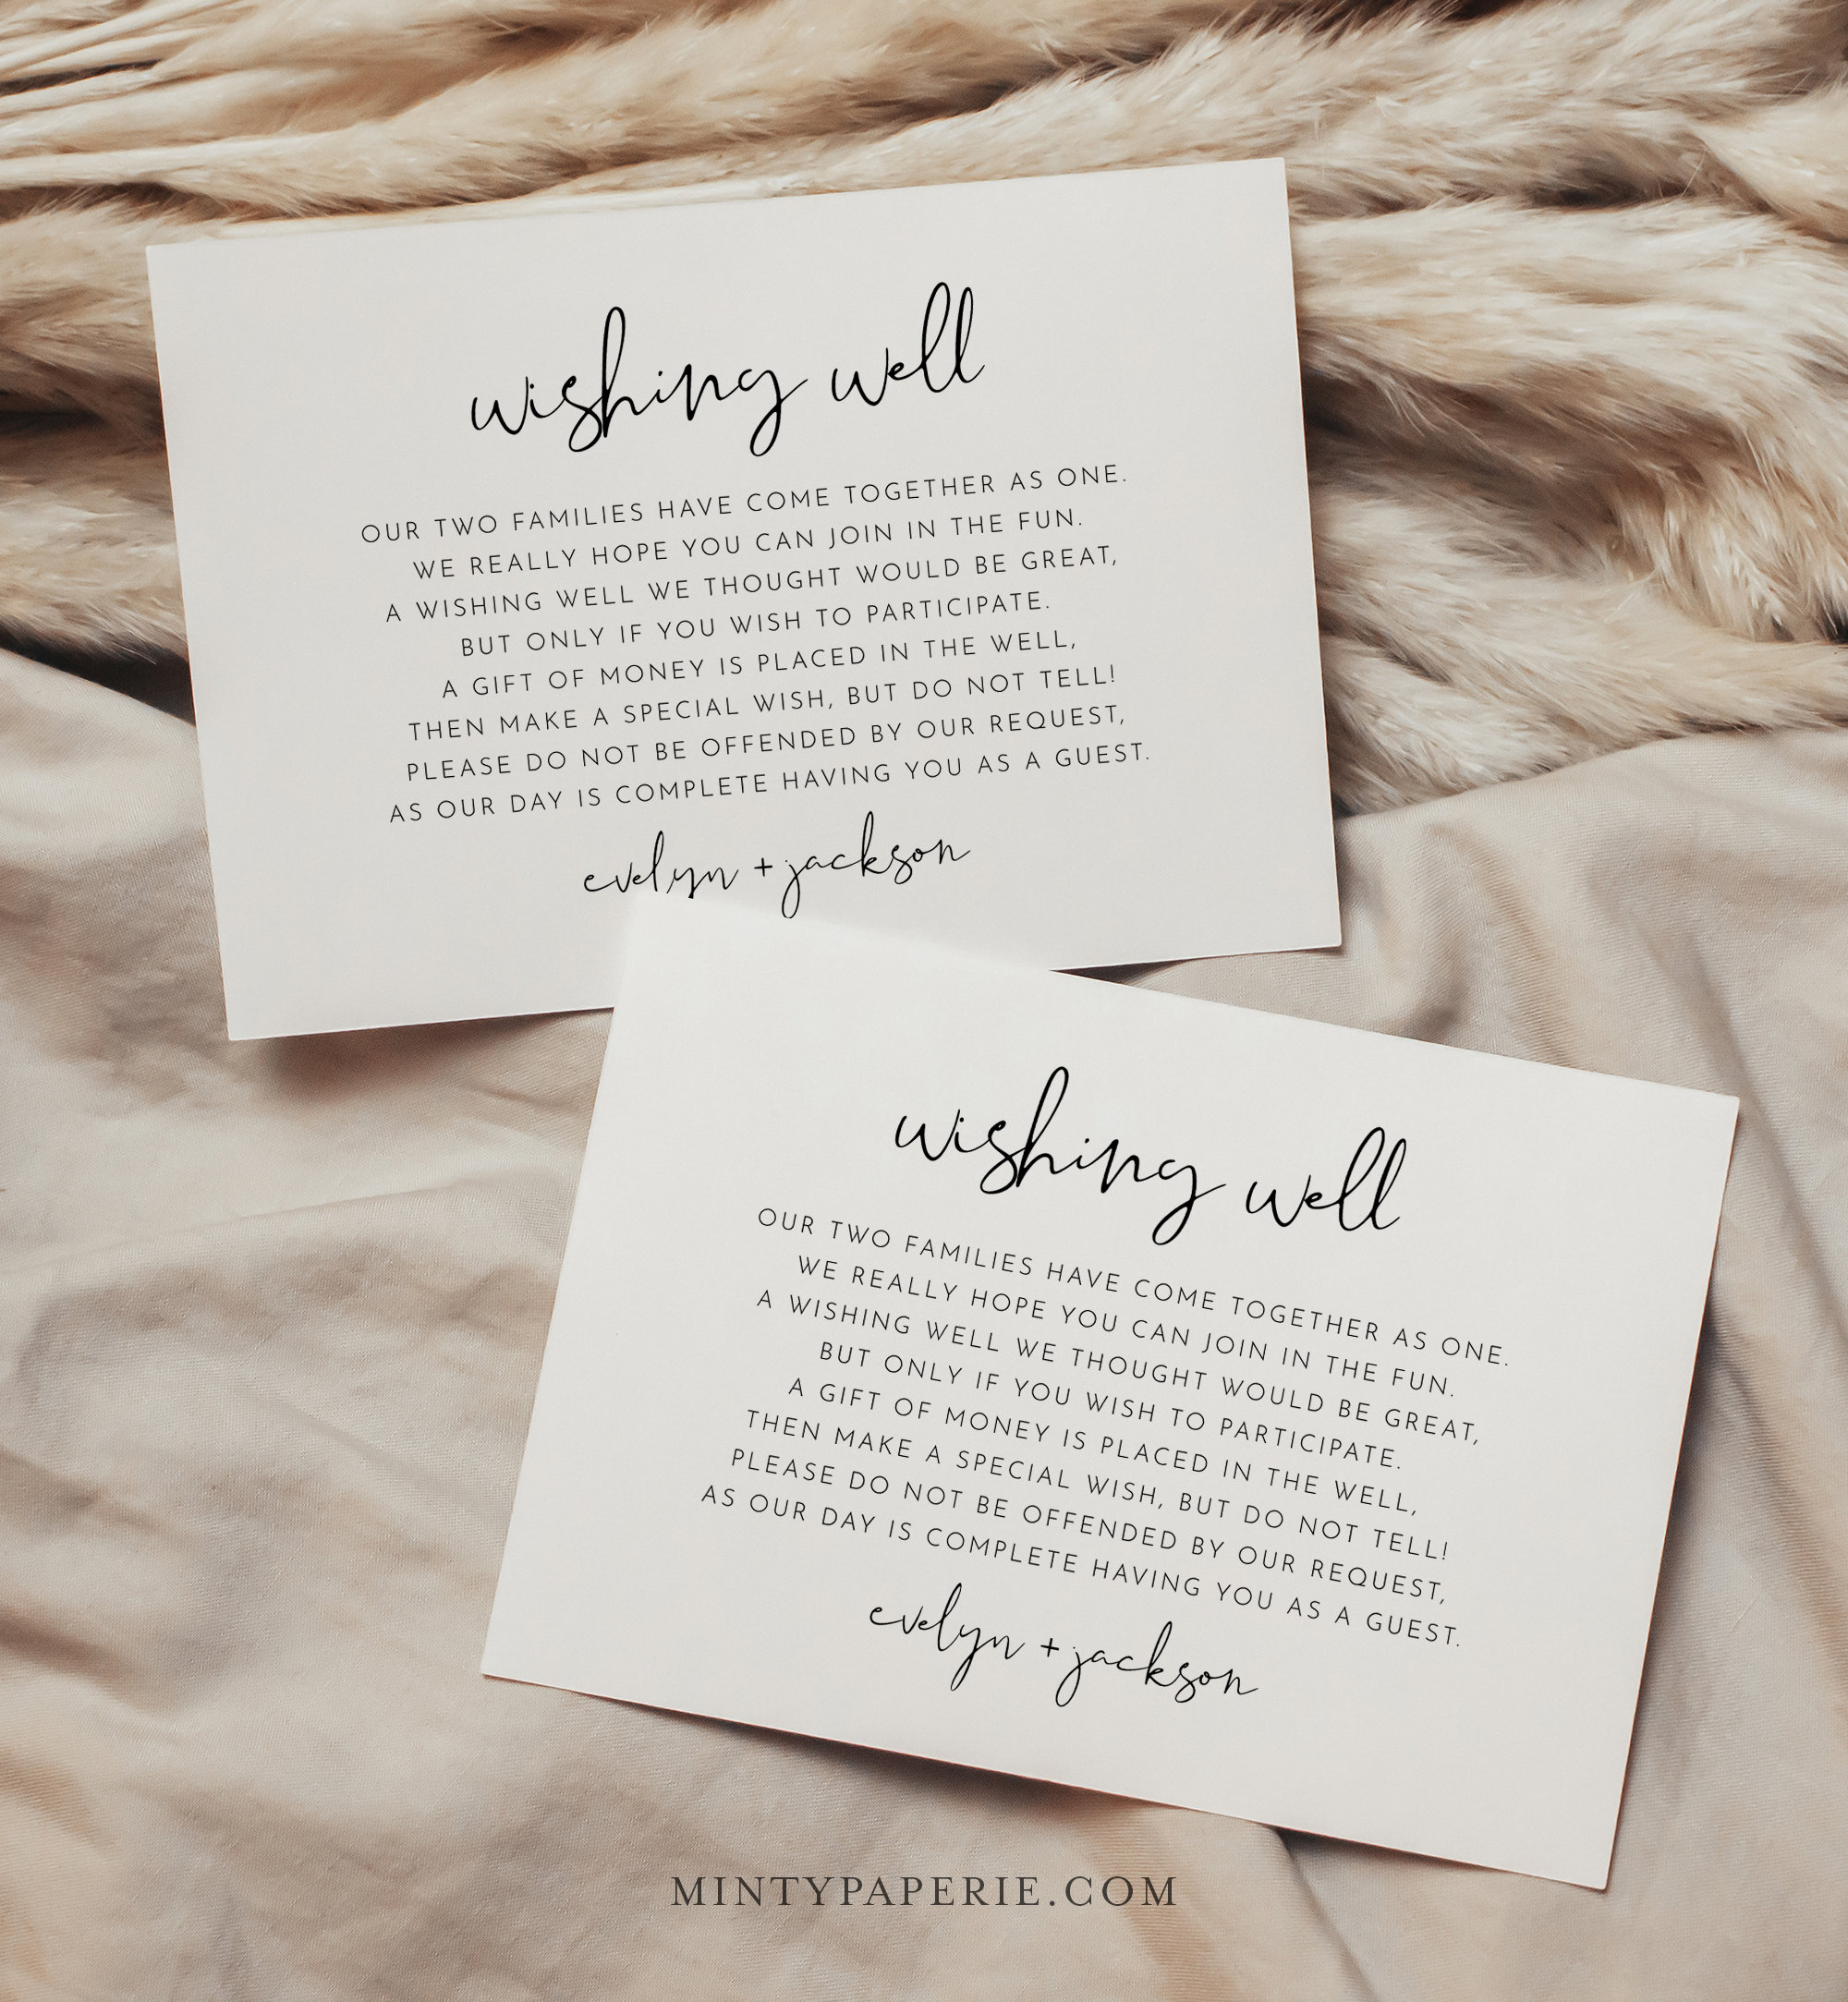 wishing well
OUR TWO FAMILIES HAVE COME TOGETHER AS ONE.
WE REALLY HOPE YOU CAN JOIN IN THE FUN.
A WISHING WELL WE THOUGHT WOULD BE GREAT,
BUT ONLY IF YOU WISH TO PARTICIPATE.
A GIFT OF MONEY IS PLACED IN THE WELL,
THEN MAKE A SPECIAL WISH, BUT DO NOT TELL!
PLEASE DO NOT BE OFFENDED BY OUR REQUEST,
AS OUR DAY IS COMPLETE HAVING YOU AS A GUEST.
evelyn + jackson
wishing well
OUR TWO FAMILIES HAVE COME TOGETHER AS ONE.
WE REALLY HOPE YOU CAN JOIN IN THE FUN.
A WISHING WELL WE THOUGHT WOULD BE GREAT,
BUT ONLY IF YOU WISH TO PARTICIPATE.
A GIFT OF MONEY IS PLACED IN THE WELL,
THEN MAKE A SPECIAL WISH, BUT DO NOT TELL!
PLEASE DO NOT BE OFFENDED BY OUR REQUEST,
AS OUR DAY IS COMPLETE HAVING YOU AS A GUEST.
evelyn + jackson
MINTYPAPERIE.COM